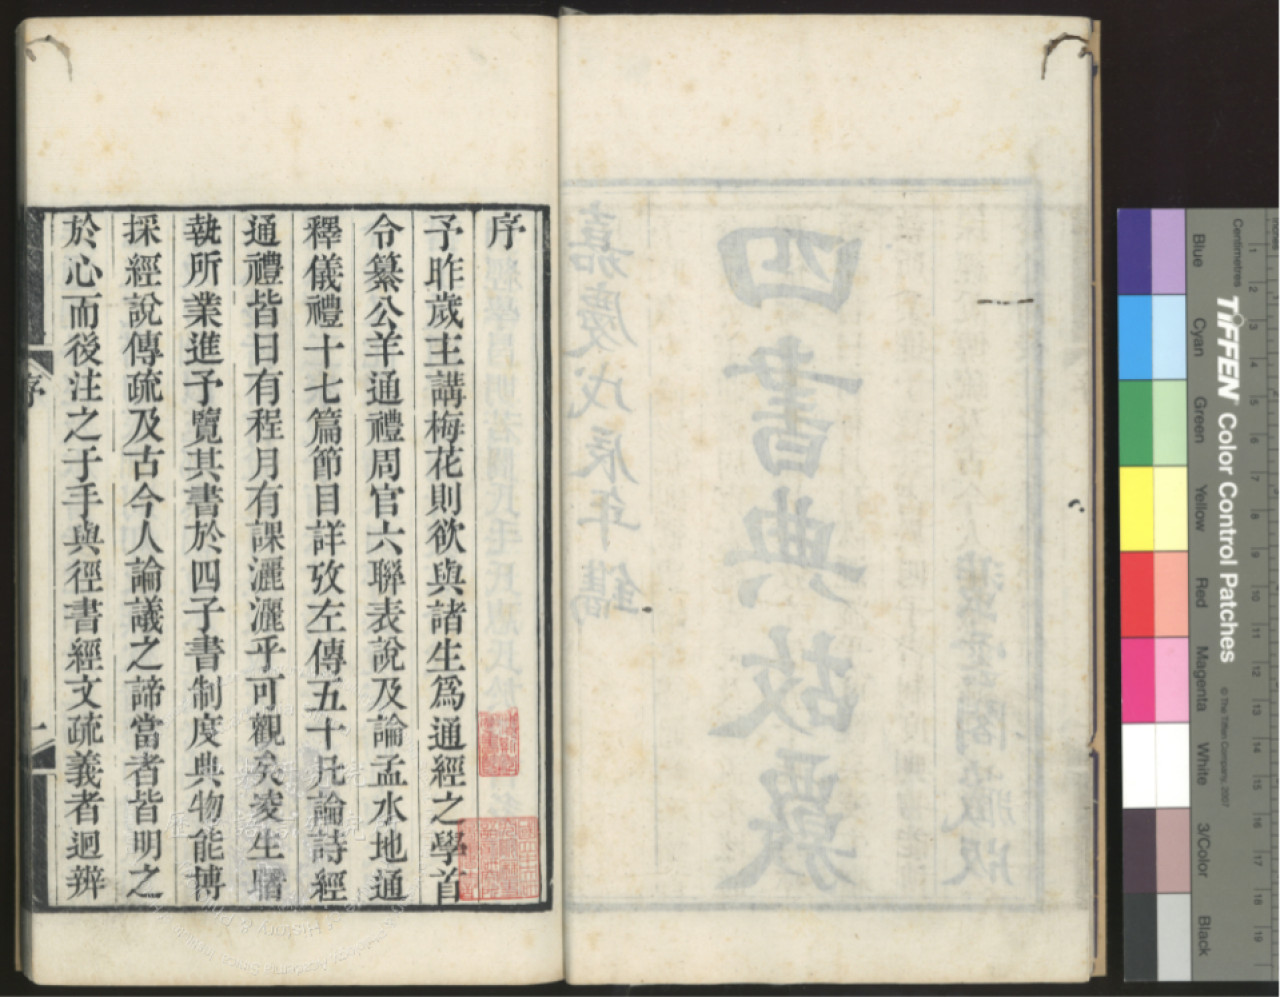 序
予昨歲主講梅花則欲與諸生爲通經之學首
令纂公羊通禮周官六聯表說及論孟水地通
釋儀禮十七篇節目詳攷左傳五十凡論詩經
通禮皆日有程月有課灑灑乎可觀矣凌生曙
執所業進予覽其書於四子書制度典物能博
採經說傳疏及古今人論議之諦當者皆明之
於心而後注之于手與徑書經文疏義者迥辨
序
一
四書典故覈
嘉慶戊辰年鐫
藏版
Centimetres
Blue
Cyan
Green
Yellow
Red
Magenta
White
3/Color
Black
TIFFEN Color Control Patches
© The Tiffen Company, 2007
1
2
3
4
5
6
7
8
9
10
11
12
13
14
15
16
17
18
19